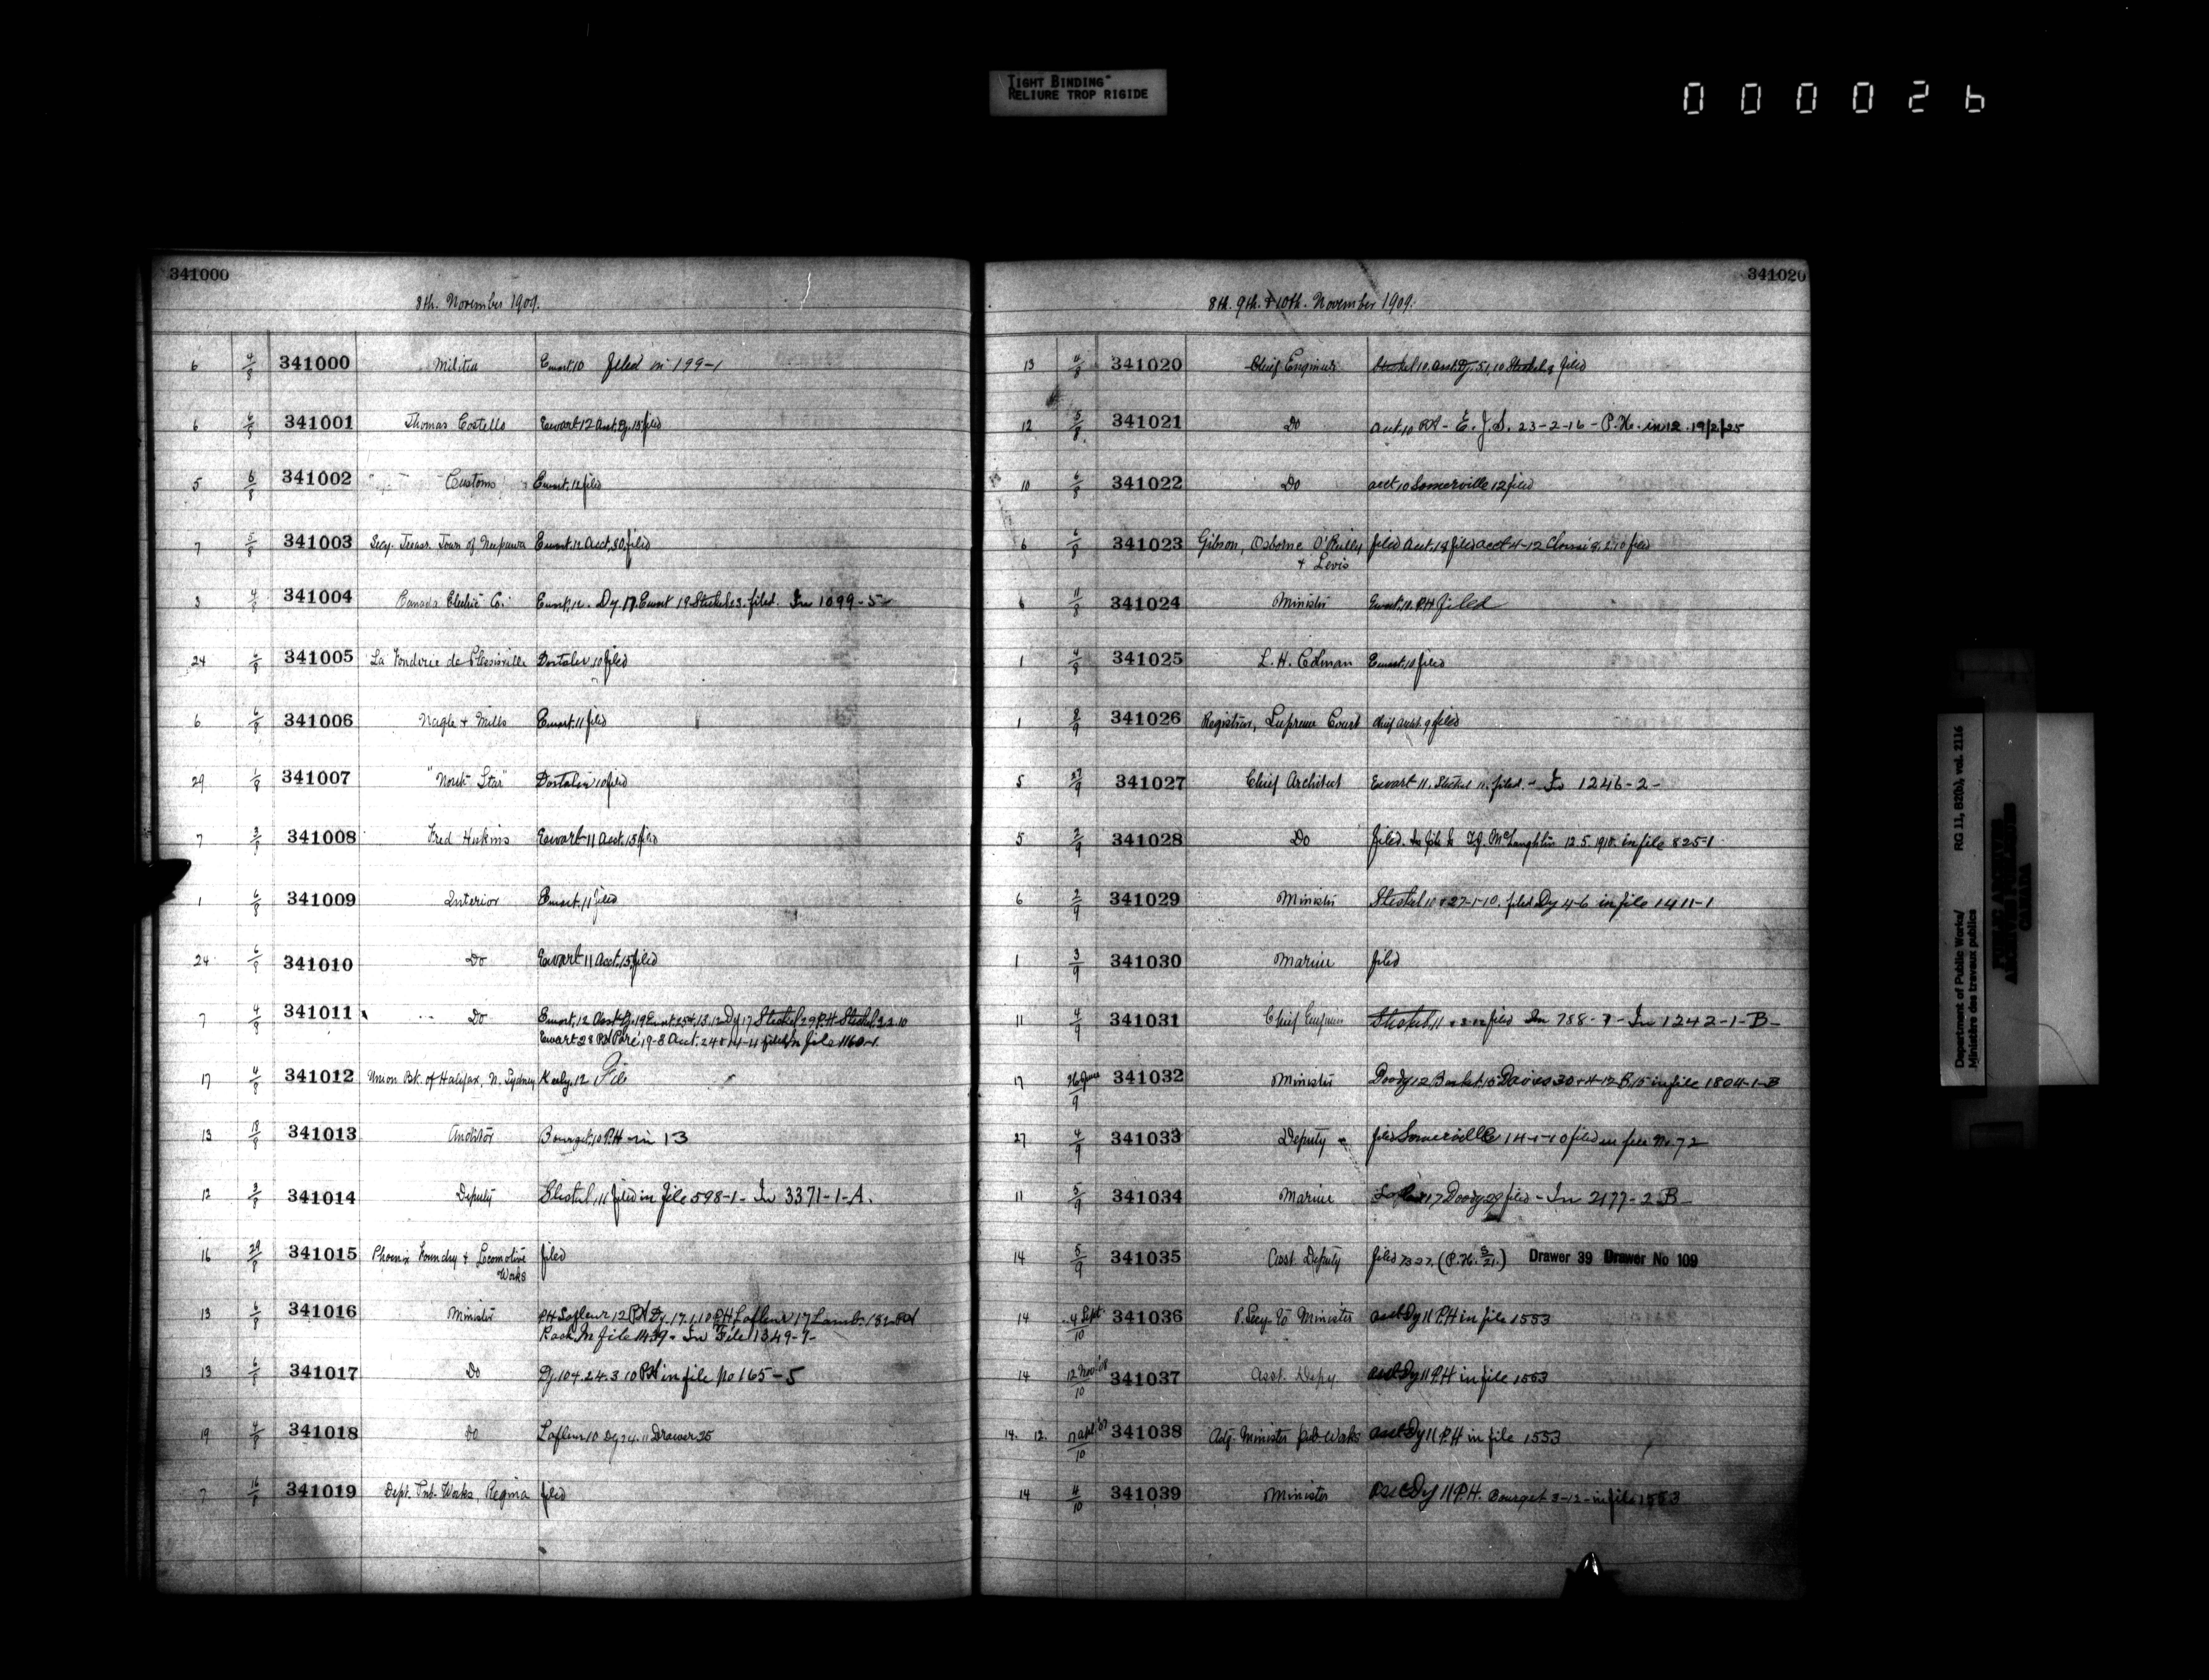 TIGHT BINDING
RELIURE TROP RIGIDE
000026
341000
8th. November 1909.
6 4/8 341000 Militia Ewart 10 filed in 199-1
6 6/8 341001 Thomas Costello Ewart 12 Acct. Dy. 15 filed
5 6/8 341002 Customs Ewart, 12 filed
7 5/8 341003 Secy. Treas. Town of Neepawa Ewart, 12 Acct, 30, filed
3 4/8 341004 Canada Electric Co. Ewart, 12. Dy. 17. Ewart 19 Steckel 23. filed. In 1099-5-
24 6/8 341005 La Fonderie de Plessisville Dostaler, 10 filed
6 6/8 341006 Nagle + Mills Ewart. 11 filed
29 1/8 341007 "North Star" Dostaler 10 filed
7 3/8 341008 Fred Hukins Ewart 11 Acct. 15 filed
1 6/8 341009 Interior Ewart. 11 filed
24 6/8 341010 Do Ewart 11 Acct. 15, filed
7 4/8 341011 Do Ewart, 12 Steckel 29 P.H. Steckel
Ewart 28 in file 1160-1.
17 4/8 341012 Union Bk. of Halifax, N. Sydney Kealy. 12 File
13 18/8 341013 Auditor Bourget, 10 P.H - in 13
12 3/8 341014 Deputy Steckel, 11 filed in file 598-1- In 3371-1-A.
16 29/8 341015 Phoenix Foundry + Locomotive filed
Works
13 6/8 341016 Minister P.H Lafleur 12 P.H Lafleur 17
in file 1439 - In File 1349-7-
13 6/8 341017 Do Dy. 10 24.3 10 P.H in file No 165-5
19 4/8 341018 Do Lafleur 10 Dy 24. 11 Drawer 25
7 16/8 341019 Dept. Pub. Works, Regina filed
341020
8th. 9th. & 10th. November 1909.
13 4/8 341020 Chief Engineer Steckel 10. Asst. Dy. 10 Steckel filed
12 5/8 341021 Do acct. 10 P.H - E. J. S. 23-2-16 - P.H. in 12. 19/2/25
10 6/8 341022 Do acct 10 Somerville 12 filed
6 6/8 341023 Gibson, Osborne O'Reilly filed Acct. 19 filed acct 4-12 filed
+ Levis
6 11/8 341024 Minister Ewart. 11. P.H filed
1 4/8 341025 L. H. Colman Ewart. 10 filed
1 8/9 341026 Registrar, Supreme Court Chief Archt. 9 filed
5 27/9 341027 Chief Architect Ewart 11. Steckel 11. filed. - In 1246-2-
5 2/9 341028 Do filed. McLaughlin 12.5.1910. in file 825-1
6 2/9 341029 Minister Steckel 10 + 27-1-10. filed Dy 4-6 in file 1411-1
1 3/9 341030 Marine filed
11 4/9 341031 Chief Engineer Steckel, 11 filed In 788-7- In 1242-1-B-
17 26 June/9 341032 Minister Doody 12 Davies 30 + 4-12 in file 1804-1-B
27 4/9 341033 Deputy filed Somerville 14-1-10 filed in file No. 72
11 5/9 341034 Marine 17 Doody 29 filed - In 2177-2 B-
14 5/9 341035 Asst. Deputy filed (P.H. 5/21.) Drawer 39 Drawer No 109
14 4 Sept/10 341036 P. Secy. to Minister asst Dy 11 P.H in file 1553
14 12 Nov '08/10 341037 Asst. Depy asst Dy 11 P.H in file 1553
14. 12. 341038 Actg. Minister Pub Works asst Dy 11 P.H in file 1553
14 4/10 341039 Minister asst Dy 11 P.H. Bourget 3-12- in file 1553
Department of Public Works/ RG 11, B2(b), vol. 2116
Ministère des travaux publics
PUBLIC ARCHIVES
ARCHIVES PUBLIQUES
CANADA